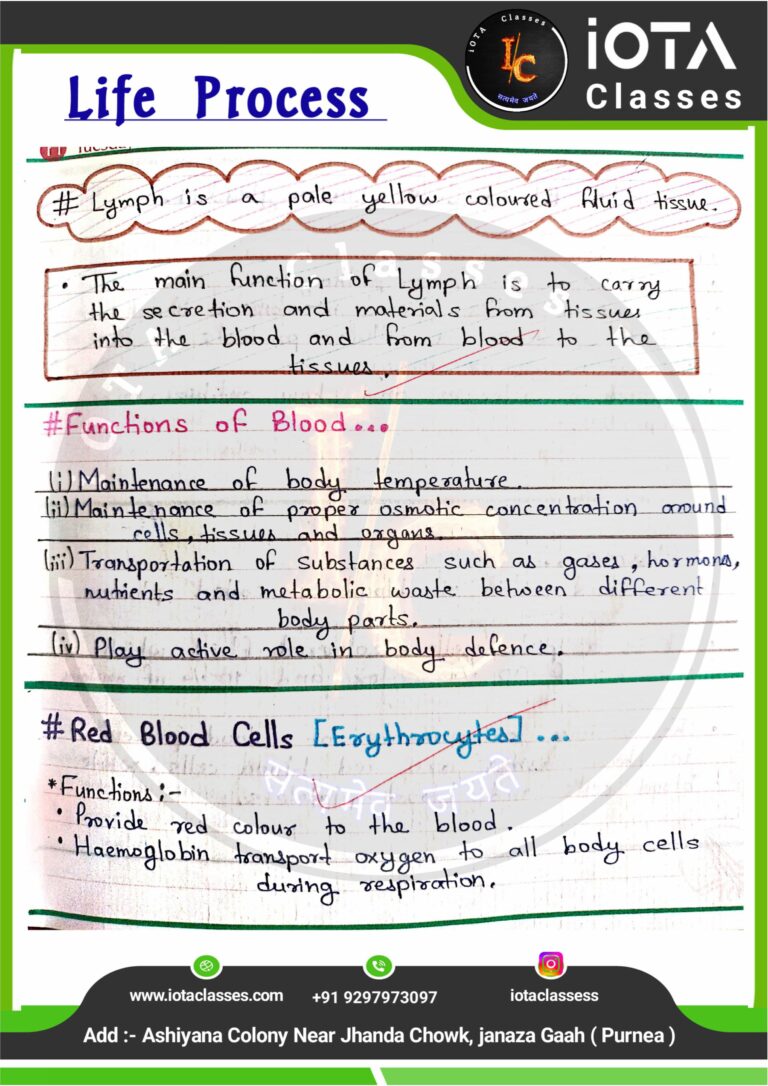 iOTA Classes
I/C
सत्यमेव जयते
iOTA
Classes
Life Process
# Lymph is a pale yellow coloured fluid tissue.
• The main function of Lymph is to carry
the secretion and materials from tissues
into the blood and from blood to the
tissues.
#Functions of Blood...
(i) Maintenance of body temperature.
(ii) Maintenance of proper osmotic concentration around
cells, tissues and organs.
(iii) Transportation of substances such as gases, hormons,
nutrients and metabolic waste between different
body parts.
(iv) Play active role in body defence.
# Red Blood Cells [Erythrocytes]...
*Functions:-
• Provide red colour to the blood.
• Haemoglobin transport oxygen to all body cells
during respiration.
iOTA Classes
I/C
सत्यमेव जयते
www.iotaclasses.com
+91 9297973097
iotaclassess
Add :- Ashiyana Colony Near Jhanda Chowk, janaza Gaah ( Purnea )